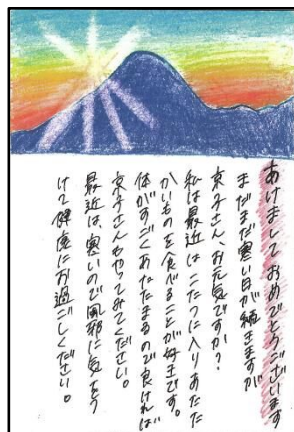 あけましておめでとうございます
まだまだ寒い日が続きますが
京子さん、お元気ですか？
私は最近はこたつに入りあたた
かいものを食べることが好きです。
体がすごくあたたまるので良ければ
京子さんもやってみてください。
最近は、寒いので風邪に気をつ
けて健康にお過ごしください。